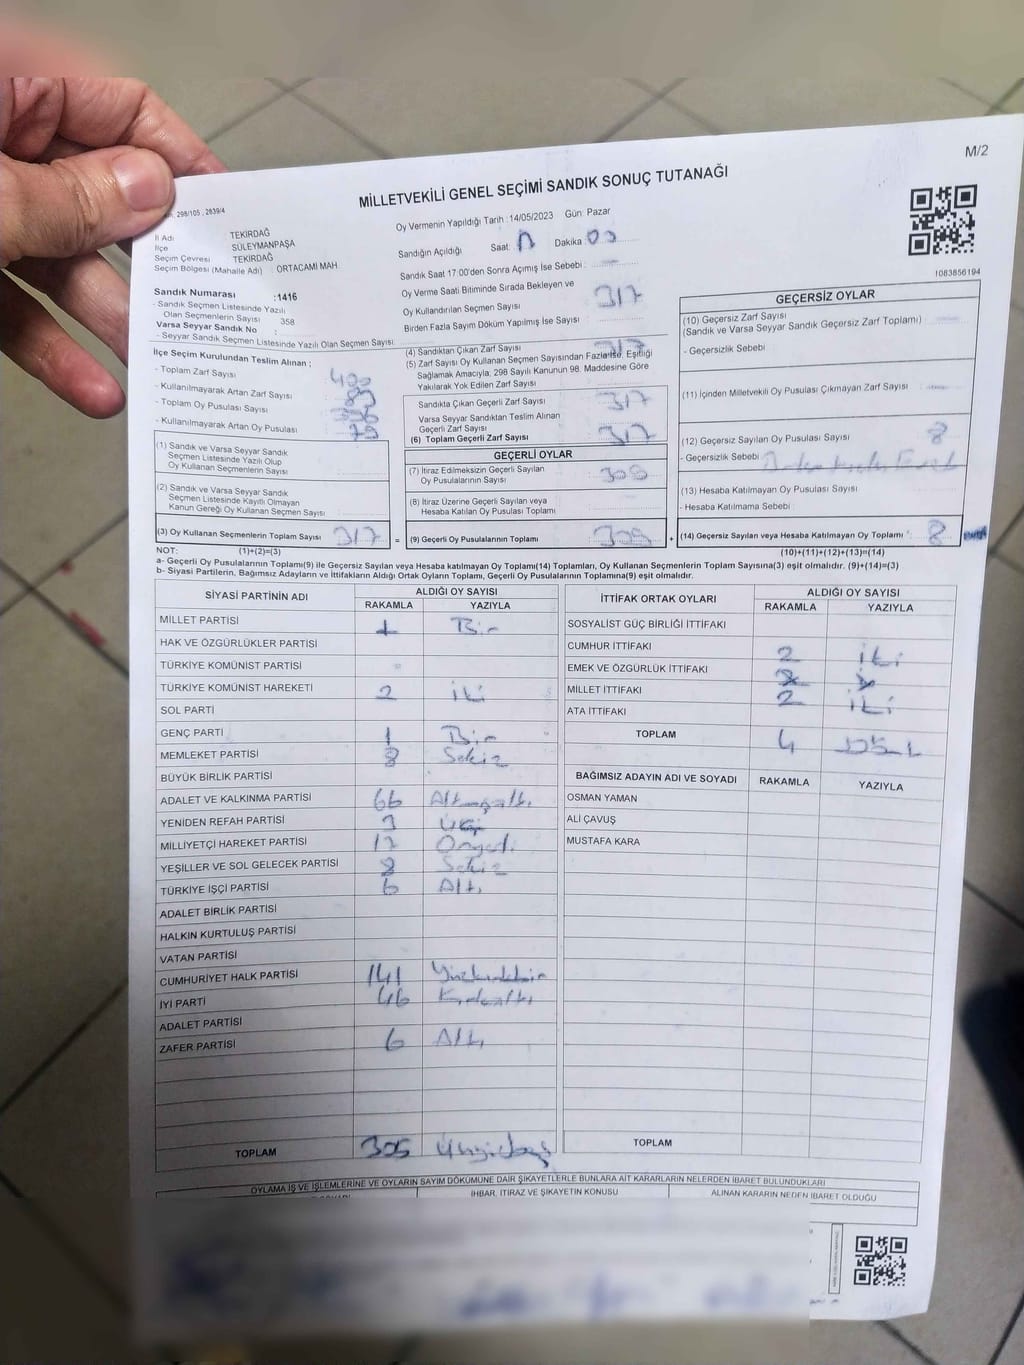 M/2
MİLLETVEKİLİ GENEL SEÇİMİ SANDIK SONUÇ TUTANAĞI
298/105 , 2839/4
İl Adı : TEKİRDAĞ
İlçe SÜLEYMANPAŞA
Seçim Çevresi TEKİRDAĞ
Seçim Bölgesi (Mahalle Adı) : ORTACAMİ MAH.
Sandık Numarası :1416
- Sandık Seçmen Listesinde Yazılı
Olan Seçmenlerin Sayısı : 358
Varsa Seyyar Sandık No :
- Seyyar Sandık Seçmen Listesinde Yazılı Olan Seçmen Sayısı
Oy Vermenin Yapıldığı Tarih :14/05/2023 Gün: Pazar
Sandığın Açıldığı Saat: Dakika: 00
Sandık Saat 17:00'den Sonra Açımış İse Sebebi :
Oy Verme Saati Bitiminde Sırada Bekleyen ve
Oy Kullandırılan Seçmen Sayısı 317
Birden Fazla Sayım Döküm Yapılmış İse Sayısı
1083856194
İlçe Seçim Kurulundan Teslim Alınan ;
- Toplam Zarf Sayısı 400
- Kullanılmayarak Artan Zarf Sayısı 83
- Toplam Oy Pusulası Sayısı
- Kullanılmayarak Artan Oy Pusulası 79
(1) Sandık ve Varsa Seyyar Sandık
Seçmen Listesinde Yazılı Olup
Oy Kullanan Seçmenlerin Sayısı
(2) Sandık ve Varsa Seyyar Sandık
Seçmen Listesinde Kayıtlı Olmayan
Kanun Gereği Oy Kullanan Seçmen Sayısı
(3) Oy Kullanan Seçmenlerin Toplam Sayısı 317 =
(4) Sandıktan Çıkan Zarf Sayısı 317
(5) Zarf Sayısı Oy Kullanan Seçmen Sayısından Fazla İse, Eşitliği
Sağlamak Amacıyla, 298 Sayılı Kanunun 98. Maddesine Göre
Yakılarak Yok Edilen Zarf Sayısı
Sandıkta Çıkan Geçerli Zarf Sayısı 317
Varsa Seyyar Sandıktan Teslim Alınan
Geçerli Zarf Sayısı
(6) Toplam Geçerli Zarf Sayısı 317
GEÇERLİ OYLAR
(7) İtiraz Edilmeksizin Geçerli Sayılan
Oy Pusulalarının Sayısı 309
(8) İtiraz Üzerine Geçerli Sayılan veya
Hesaba Katılan Oy Pusulası Toplamı
(9) Geçerli Oy Pusulalarının Toplamı 309 +
GEÇERSİZ OYLAR
(10) Geçersiz Zarf Sayısı
(Sandık ve Varsa Seyyar Sandık Geçersiz Zarf Toplamı)
- Geçersizlik Sebebi
(11) İçinden Milletvekili Oy Pusulası Çıkmayan Zarf Sayısı
(12) Geçersiz Sayılan Oy Pusulası Sayısı 8
- Geçersizlik Sebebi
(13) Hesaba Katılmayan Oy Pusulası Sayısı
- Hesaba Katılmama Sebebi
(14) Geçersiz Sayılan veya Hesaba Katılmayan Oy Toplamı : 8
NOT: (1)+(2)=(3)
(10)+(11)+(12)+(13)=(14)
a- Geçerli Oy Pusulalarının Toplamı(9) ile Geçersiz Sayılan veya Hesaba katılmayan Oy Toplamı(14) Toplamları, Oy Kullanan Seçmenlerin Toplam Sayısına(3) eşit olmalıdır. (9)+(14)=(3)
b- Siyasi Partilerin, Bağımsız Adayların ve İttifakların Aldığı Ortak Oyların Toplamı, Geçerli Oy Pusulalarının Toplamına(9) eşit olmalıdır.
SİYASİ PARTİNİN ADI ALDIĞI OY SAYISI
RAKAMLA YAZIYLA
MİLLET PARTİSİ 1 Bir
HAK VE ÖZGÜRLÜKLER PARTİSİ
TÜRKİYE KOMÜNİST PARTİSİ
TÜRKİYE KOMÜNİST HAREKETİ 2 iki
SOL PARTİ
GENÇ PARTİ 1 Bir
MEMLEKET PARTİSİ 8 Sekiz
BÜYÜK BİRLİK PARTİSİ
ADALET VE KALKINMA PARTİSİ 66 Altmışaltı
YENİDEN REFAH PARTİSİ 3 Üç
MİLLİYETÇİ HAREKET PARTİSİ 17 Onyedi
YEŞİLLER VE SOL GELECEK PARTİSİ 8 Sekiz
TÜRKİYE İŞÇİ PARTİSİ 6 Altı
ADALET BİRLİK PARTİSİ
HALKIN KURTULUŞ PARTİSİ
VATAN PARTİSİ
CUMHURİYET HALK PARTİSİ 141 Yüzkırkbir
İYİ PARTİ 46 Kırkaltı
ADALET PARTİSİ
ZAFER PARTİSİ 6 Altı
TOPLAM 305 Üçyüzbeş
İTTİFAK ORTAK OYLARI ALDIĞI OY SAYISI
RAKAMLA YAZIYLA
SOSYALİST GÜÇ BİRLİĞİ İTTİFAKI
CUMHUR İTTİFAKI 2 iki
EMEK VE ÖZGÜRLÜK İTTİFAKI
MİLLET İTTİFAKI 2 iki
ATA İTTİFAKI
TOPLAM 4 Dört
BAĞIMSIZ ADAYIN ADI VE SOYADI RAKAMLA YAZIYLA
OSMAN YAMAN
ALİ ÇAVUŞ
MUSTAFA KARA
TOPLAM
OYLAMA İŞ VE İŞLEMLERİNE VE OYLARIN SAYIM DÖKÜMÜNE DAİR ŞİKAYETLERLE BUNLARA AİT KARARLARIN NELERDEN İBARET BULUNDUKLARI
İHBAR, İTİRAZ VE ŞİKAYETİN KONUSU ALINAN KARARIN NEDEN İBARET OLDUĞU